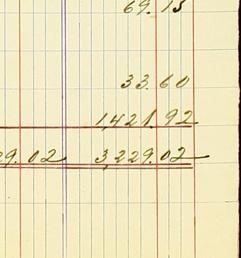 69.15
33.60
1,421.92
29.02 3,229.02